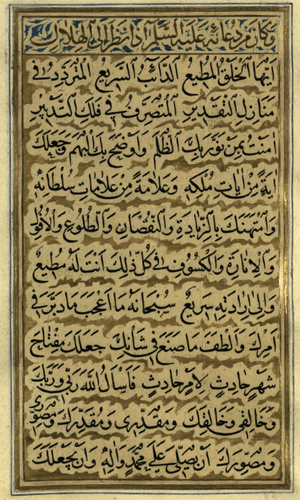 وكان من دعائه عليه السلام اذا نظر الى الهلال
ايها الخلق المطيع الدائب السريع المتردد في
منازل التقدير المتصرف في فلك التدبير
امنت بمن نور بك الظلم واوضح بك البهم وجعلك
اية من ايات ملكه وعلامة من علامات سلطانه
وامتهنك بالزيادة والنقصان والطلوع والافول
والانارة والكسوف في كل ذلك انت له مطيع
والى ارادته سريع سبحانه ما اعجب ما دبر في
امرك والطف ما صنع في شانك جعلك مفتاح
شهر حادث لامر حادث فاسال الله ربي وربك
وخالقي وخالقك ومقدري ومقدرك ومصوري
ومصورك ان يصلي على محمد واله وان يجعلك